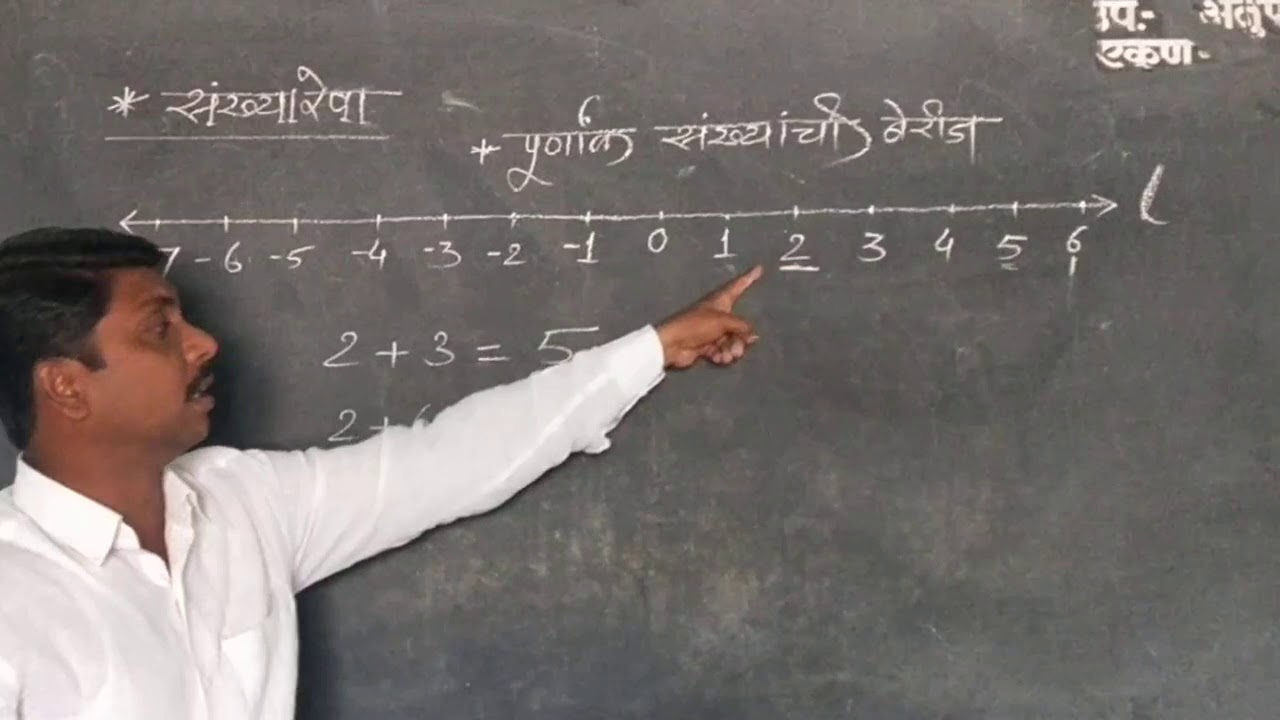 उप:-
एकूण-
* संख्यारेषा
* पूर्णांक संख्यांची बेरीज
l
7 -6 -5 -4 -3 -2 -1 0 1 2 3 4 5 6
2 + 3 = 5
2 + 6